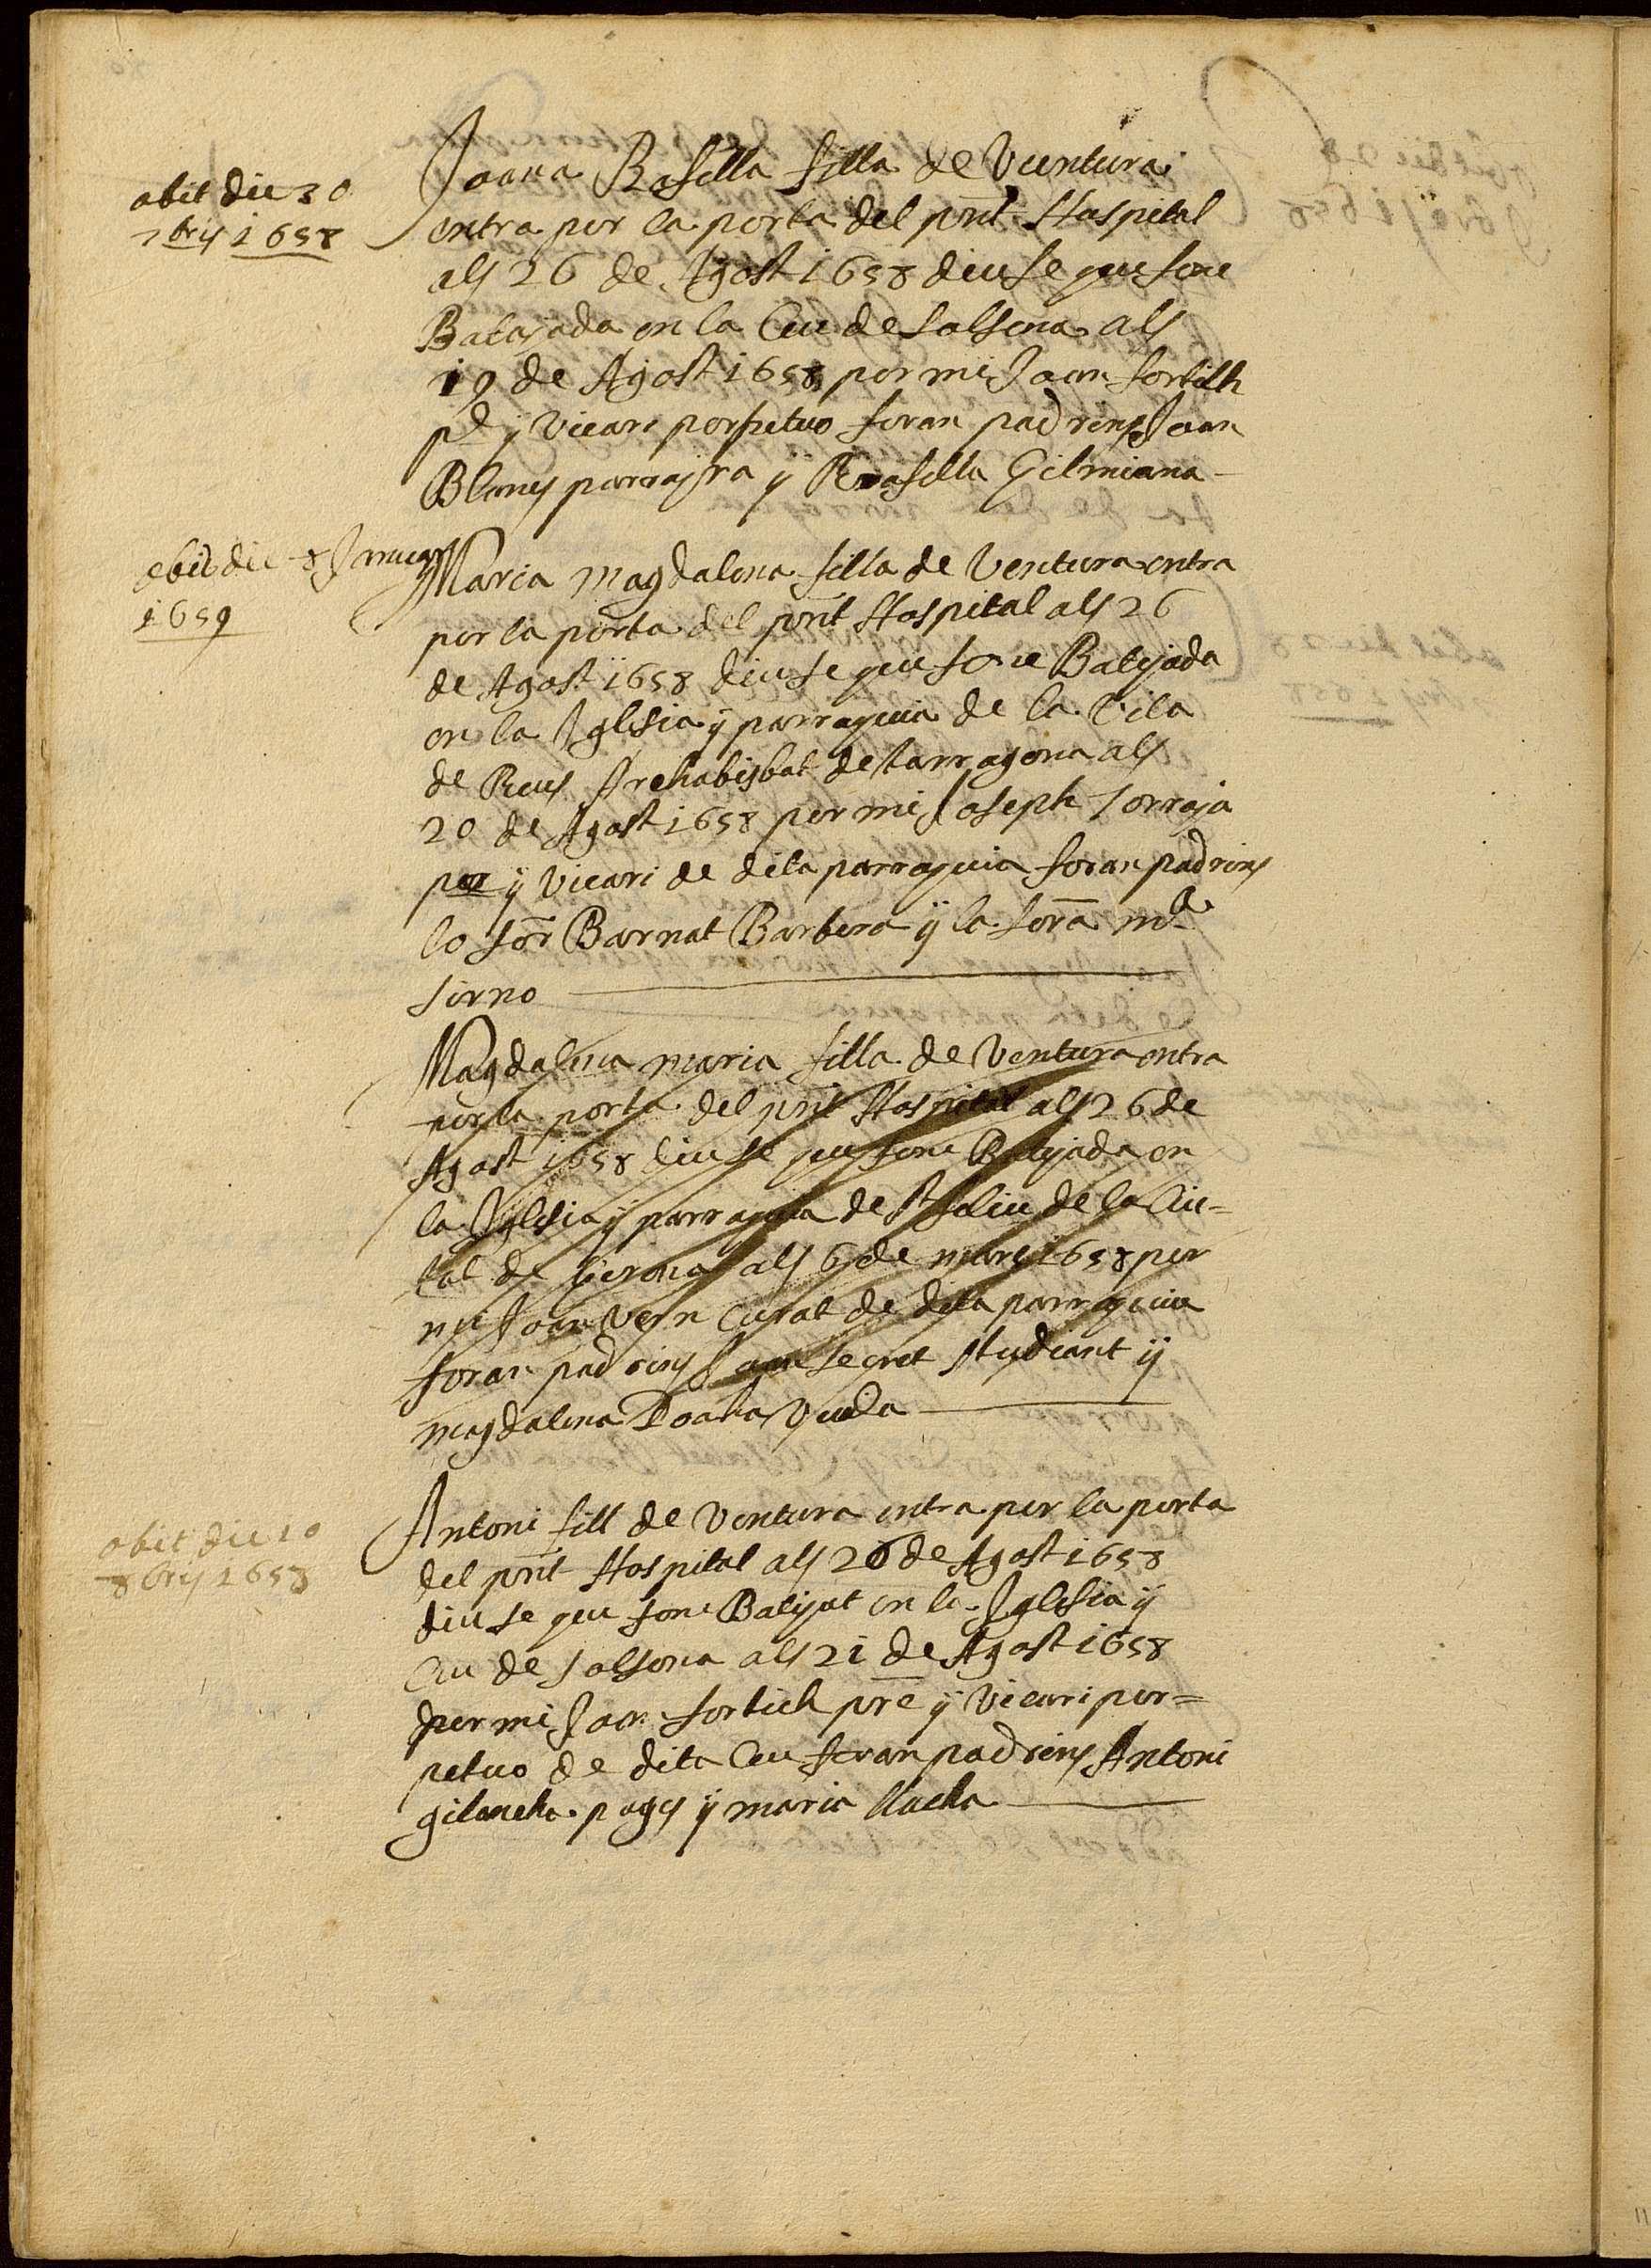 obit die 30
7bris 1658
Joana Rosilla filla de Ventura
entra per la porta del pnt Hospital
als 26 de Agost 1658 diuse que fone
Batajada en la Ceu de Solsona als
19 de Agost 1658 per mi Joan fortilh
y Vicari perpetuo foran padrins Joan
Blanys parrayra y Rosilla Gilmiana
obit die 8 Januarii
1659
Maria Magdalena filla de Ventura entra
per la porta del pnt Hospital als 26
de Agost 1658 diuse que fone Batejada
en la Iglesia y parroquia de la Vila
de Reus Archabisbat de Tarragona als
20 de Agost 1658 per mi Joseph Torroja
y Vicari de dita parroquia foran padrins
lo sor Barnat Barbera y la sora
sirno
Magdalena maria filla de Ventura entra
per la porta del pnt Hospital als 26 de
Agost 1658 diuse que fone Batejada en
la Iglesia y parroquia de St faliu de la Ciu=
tat de Gerona als 6 de mars 1658 per
mi Joan Vern Curat de dita parroquia
foran padrins Joan secret studiant y
magdalena Doaha Viuda
obit die 10
8bris 1658
Antoni fill de Ventura entra per la porta
del pnt Hospital als 26 de Agost 1658
diuse que fone Batejat en la Iglesia y
Ceu de solsona als 21 de Agost 1658
per mi Joan fortich pre y Vicari per=
petuo de dita Ceu foran padrins Antoni
gilancha pages y maria llucha